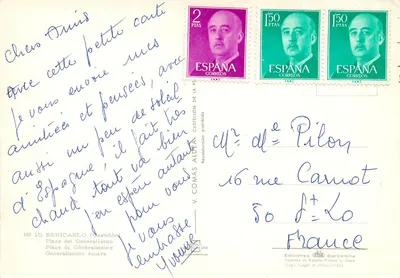 Chers Amis
Avec cette petite carte
je vous envoie mes
amitiés et pensées, avec
aussi un peu de soleil
d'Espagne, il fait très
chaud tout va bien
j'en espère autant
pour vous
je vous
embrasse
Yvonne
BENICARLO
Plaza del Generalísimo
Place du Généralissime
Generalissimo square
V. COMAS ALDEA
2
PTAS
ESPAÑA
CORREOS
1'50
PTAS
ESPAÑA
CORREOS
1'50
PTAS
ESPAÑA
CORREOS
Mr Me Pilon
16 rue Carnot
50 St Lo
France